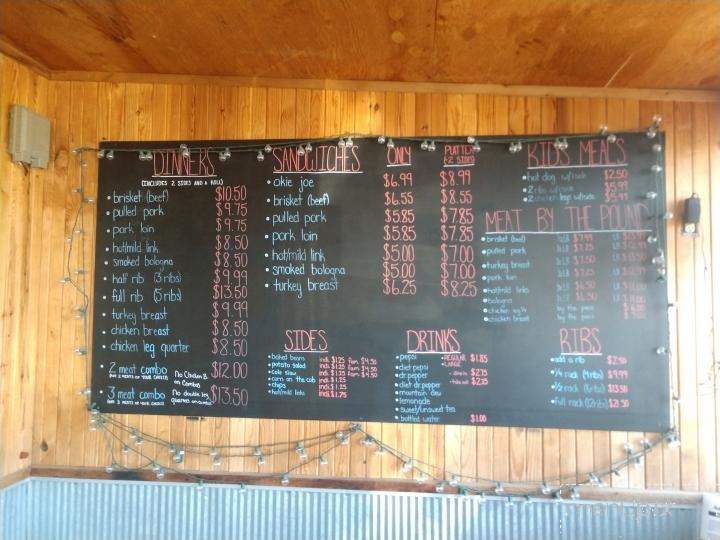 DINNERS
(INCLUDES 2 SIDES AND A ROLL)
• brisket (beef) $10.50
• pulled pork $9.75
• pork loin $9.75
• hot/mild link $8.50
• smoked bologna $8.50
• half rib (3 ribs) $9.99
• full rib (5 ribs) $13.50
• turkey breast $9.99
• chicken breast $8.50
• chicken leg quarter $8.50
• 2 meat combo No Chicken B. on Combos $12.00
• 3 meat combo No double leg quarters on combo $13.50
SANDWICHES ONLY PLATTER
+2 SIDES
• okie joe $6.99 $8.99
• brisket (beef) $6.55 $8.55
• pulled pork $5.85 $7.85
• pork loin $5.85 $7.85
• hot/mild link $5.00 $7.00
• smoked bologna $5.00 $7.00
• turkey breast $6.25 $8.25
SIDES
• baked beans indi. $1.25 fam. $4.50
• potato salad indi. $1.25 fam. $4.50
• cole slaw indi. $1.25 fam. $4.50
• corn on the cob indi. $1.25
• chips indi. $1.25
• hot/mild links indi. $1.75
DRINKS
• pepsi • REGULAR $1.85
• LARGE
• diet pepsi
• dr.pepper $2.35
• diet dr.pepper $2.35
• mountain dew
• lemonade
• sweet/unsweet tea
• bottled water $1.00
KIDS MEALS
• hot dog w/side $2.50
• 2 ribs w/side $5.99
• 2 chicken legs w/side $5.99
MEAT BY THE POUND
• brisket (beef) $7.99
• pulled pork $7.25
• turkey breast $7.25
• pork loin
• hot/mild links $6.50
• bologna $6.50
• chicken leg 1/4 by the piece
• chicken breast by the piece
RIBS
• add a rib $2.50
• 1/4 rack $9.99
• 1/2 rack (6 ribs) $13.50
• full rack (12 ribs) $21.50